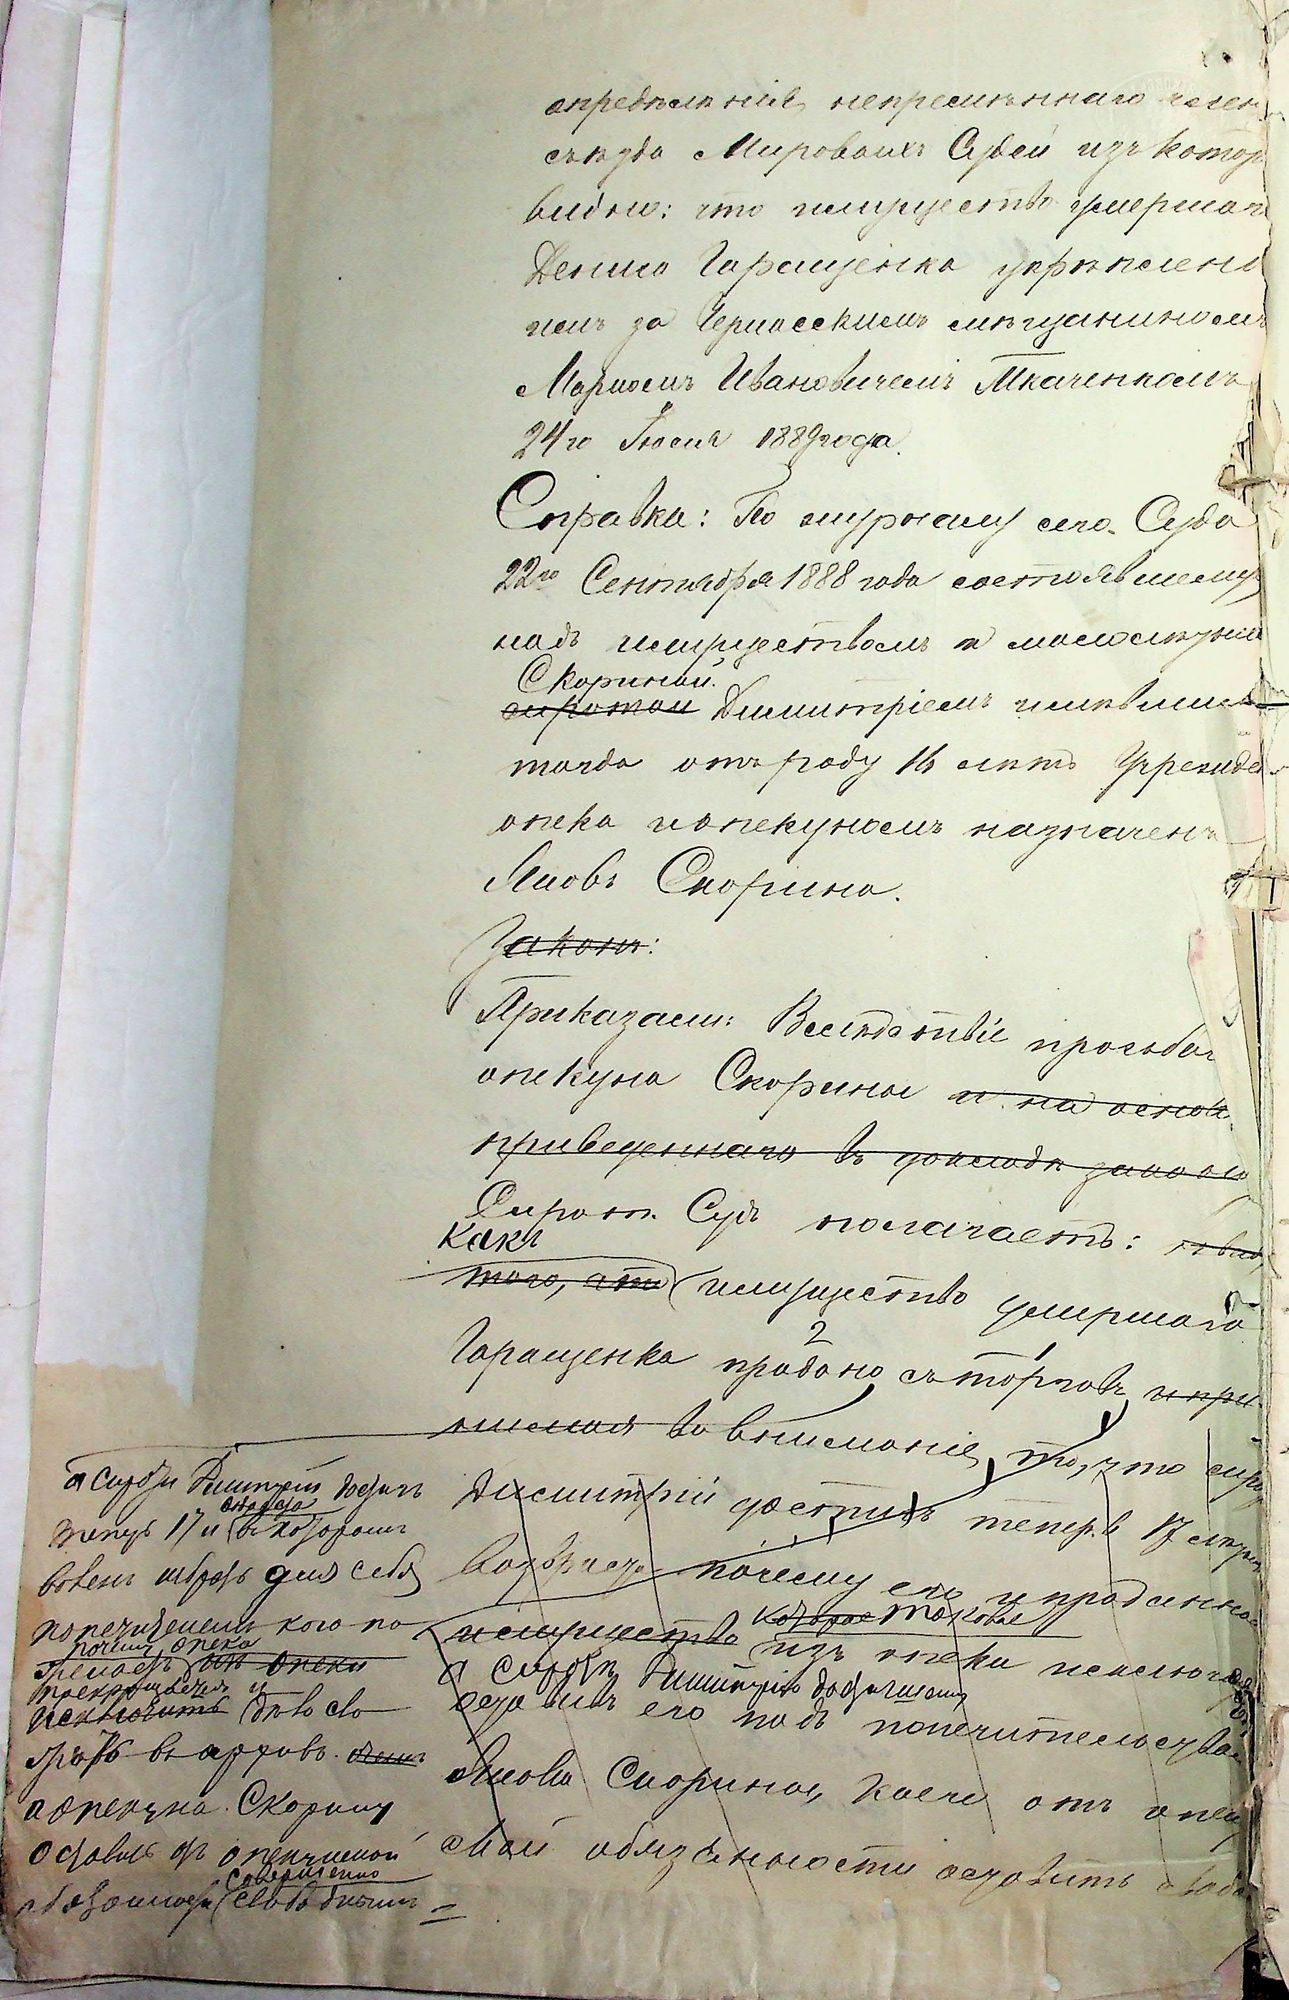 опредѣленія, непремѣннаго член
съѣзда Мировыхъ Судей изъ котор
видно: что имущество умершаго
Дениса Гаращенка укрѣплено
имъ за Черкасскимъ мѣщаниномъ
Маркомъ Ивановичемъ Ткаченкомъ
24го Іюля 1889 года.
Справка: По журналу сего Суда
22го Сентября 1888 года состоявшемуся
надъ имуществомъ и малолѣтн
Скориной.
сиротой Димитріемъ имѣвшимъ
тогда отъ роду 16 лѣтъ Учрежде
опека и опекуномъ назначенъ
Яковъ Скорина.
Законъ:
Приказали: Вслѣдствіе просьбы
опекуна Скорины и на основ
приведеннаго въ докладѣ закона
Сирот. Судъ полагаетъ: въ вид
Какъ
того, что имущество умершаго
2 1
Гаращенка продано съ торговъ и при
нимая во вниманіе, то, что сирот
Димитрій достигъ теперь 17 лѣтн
возраста почему его и проданное
которое таковое
имущество изъ опеки исключ
а сиротѣ Димитрію достигшему
оставивъ его подъ попечительств
Якова Скорины, коего отъ опек
ской обязанности оставить свобо
а сирота Димитрій достигъ
теперь 17 и въ которомъ
возраста
воленъ избрать для себя
попечителемъ кого по
почему опека
желаетъ изъ опеки
прекращается и
исключить дѣло сдо
сдать въ архивъ
а опекуна Скорину
оставить отъ опекунской
совершенно
обязанности свободнымъ =